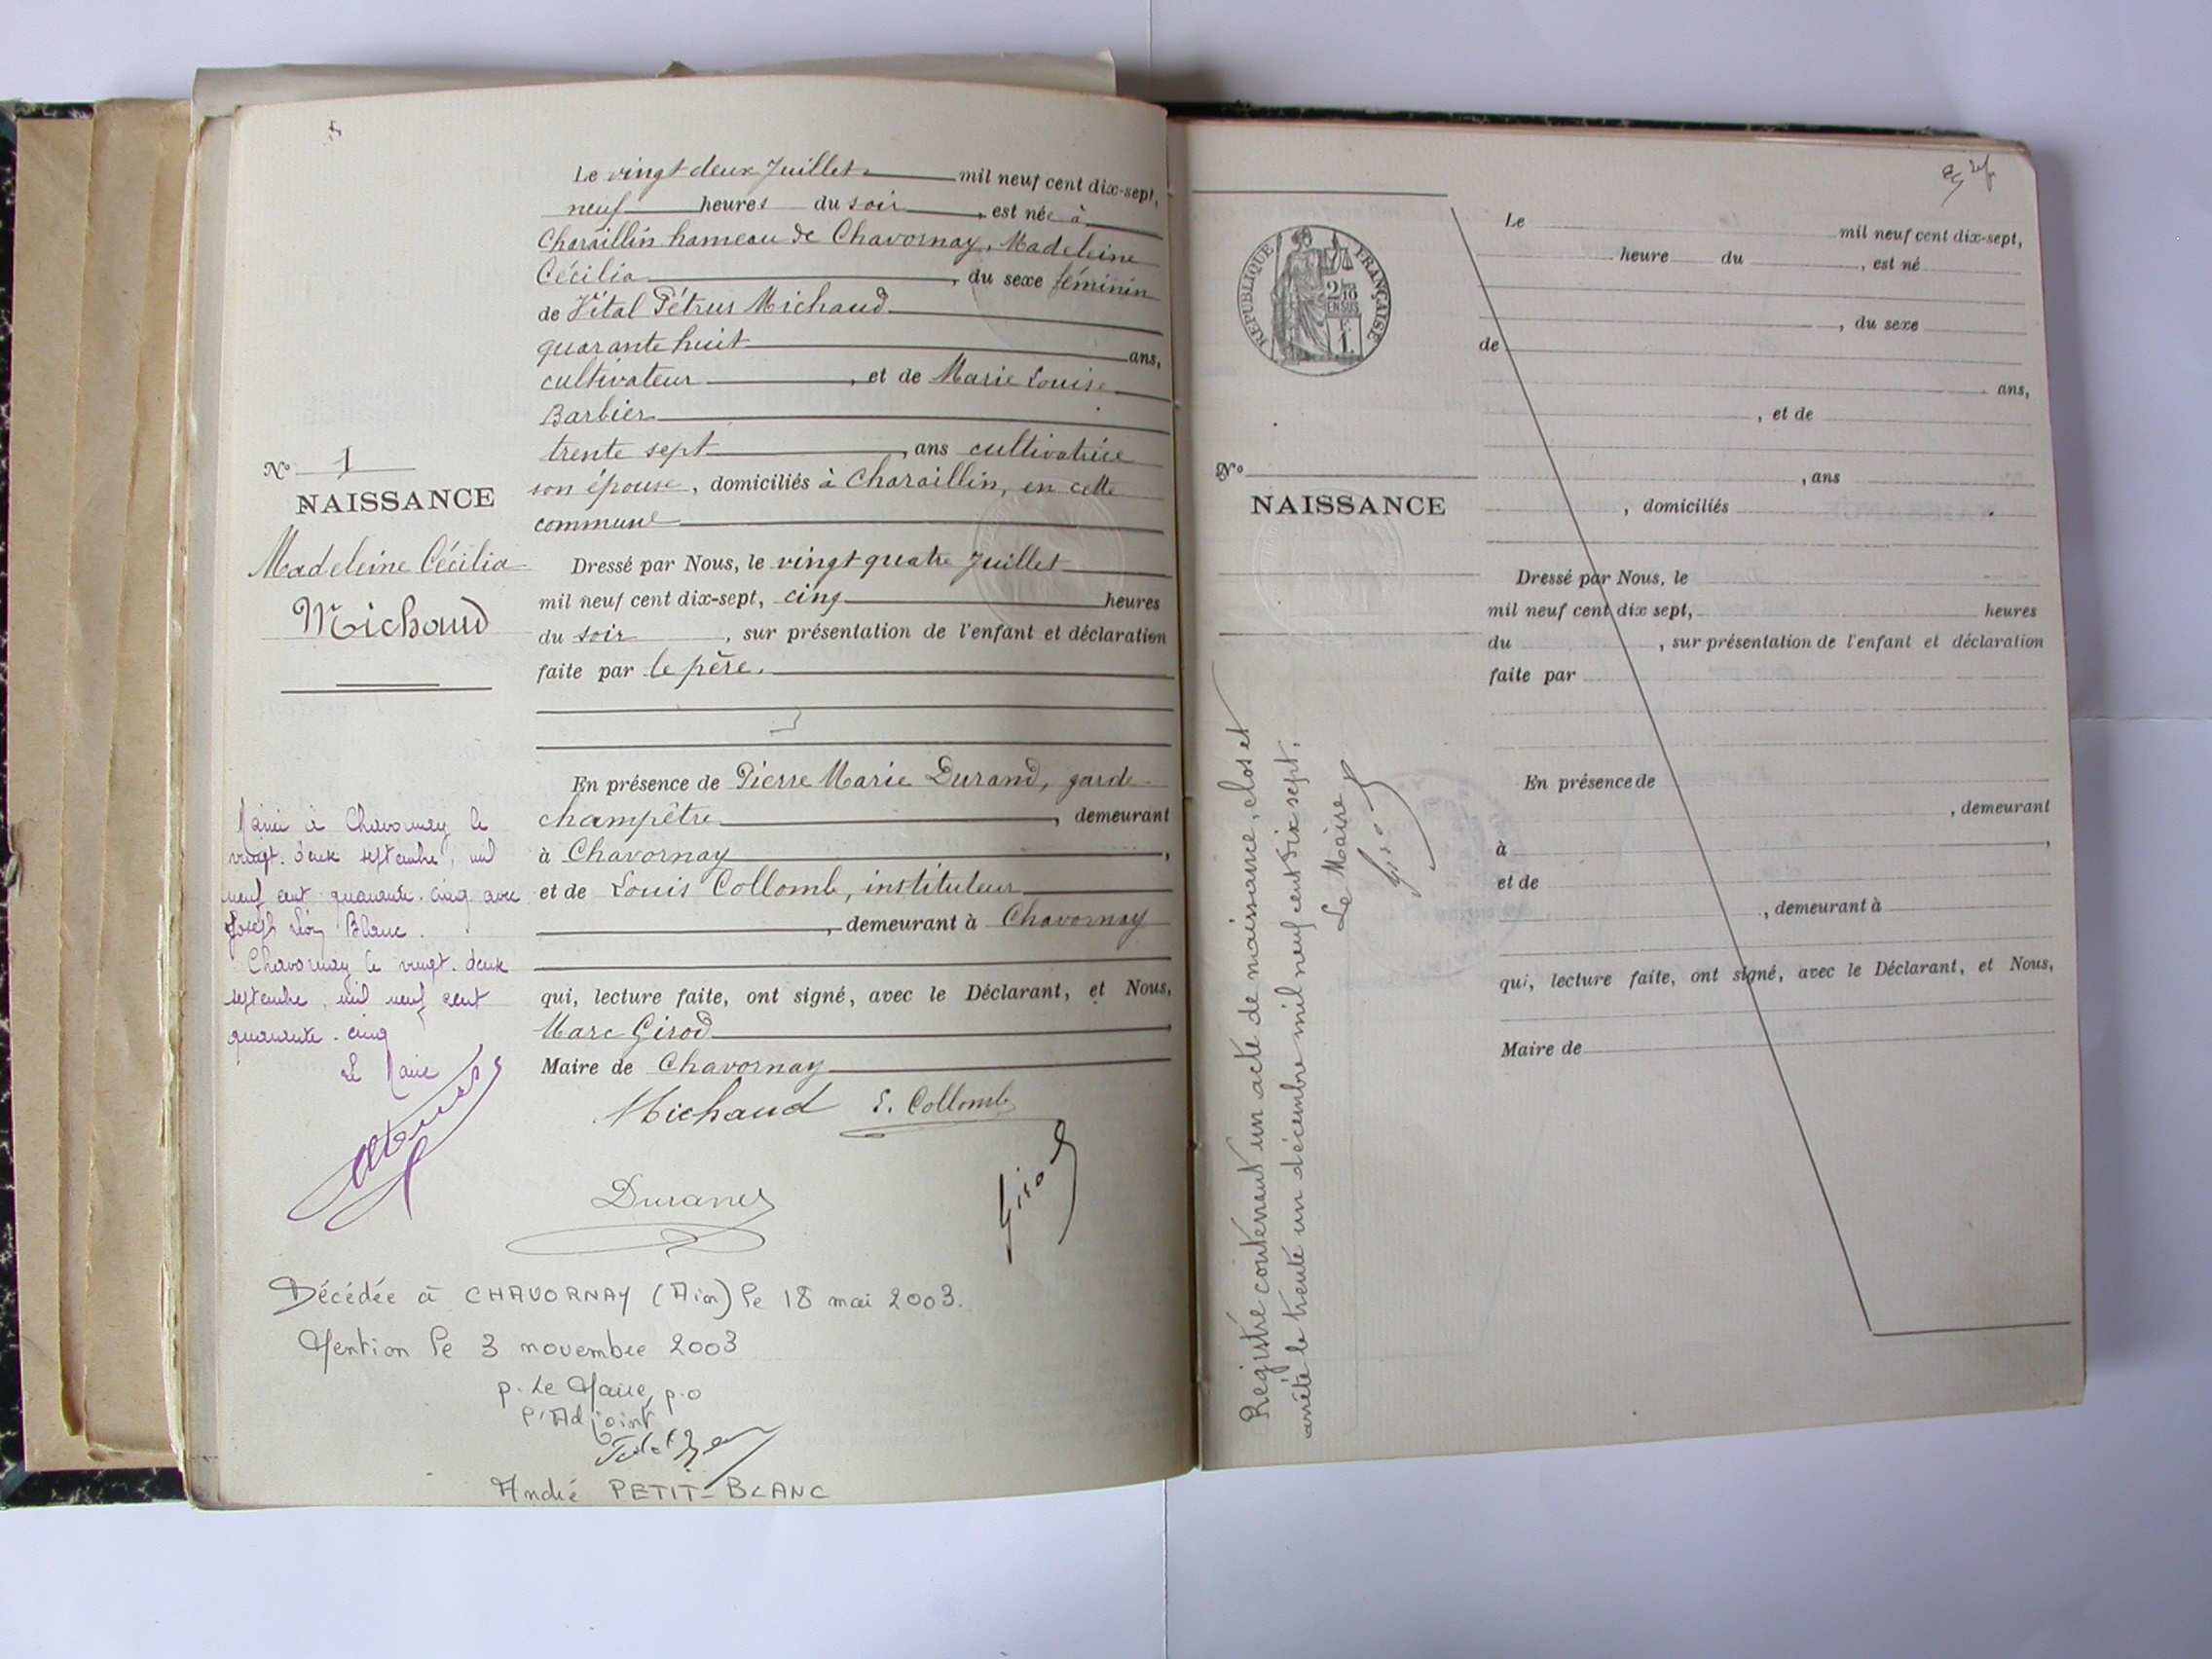 Le vingt deux Juillet mil neuf cent dix-sept,
neuf heures du soir, est née à
Charaillin hameau de Chavornay, Madeleine
Cécilia, du sexe féminin
de Vital Pétrus Michaud
quarante huit ans,
cultivateur, et de Marie Louise
Barbier
trente sept, ans cultivatrice
son épouse, domiciliés à Charaillin, en cette
commune
Dressé par Nous, le vingt quatre Juillet
mil neuf cent dix-sept, cinq heures
du soir, sur présentation de l'enfant et déclaration
faite par le père.
En présence de Pierre Marie Durand, garde-
champêtre, demeurant
à Chavornay,
et de Louis Collomb, instituteur
, demeurant à Chavornay
qui, lecture faite, ont signé, avec le Déclarant, et Nous,
Marc Girod
Maire de Chavornay
Michaud L. Collomb
Durand
Girod
N° 1
NAISSANCE
Madeleine Cécilia
Michaud
Mariée à Chavornay le
vingt-deux septembre, mil
neuf cent quarante-cinq avec
Joseph Léon Blanc.
Chavornay le vingt-deux
septembre, mil neuf cent
quarante-cinq
Le Maire
Décédée à CHAVORNAY (Ain) le 18 mai 2003.
Mention le 3 novembre 2003
p. Le Maire, p.o
l'Adjoint
André PETIT-BLANC
REPUBLIQUE FRANÇAISE
2/10
EN SUS
N°
NAISSANCE
Le mil neuf cent dix-sept,
heure du , est né
, du sexe
de
ans,
, et de
, ans
, domiciliés
Dressé par Nous, le
mil neuf cent dix sept, heures
du , sur présentation de l'enfant et déclaration
faite par
En présence de
, demeurant
à ,
et de
, demeurant à
qui, lecture faite, ont signé, avec le Déclarant, et Nous,
Maire de
Registre contenant un acte de naissance, clos et
arrêté le trente un décembre mil neuf cent dix sept.
Le Maire
Girod